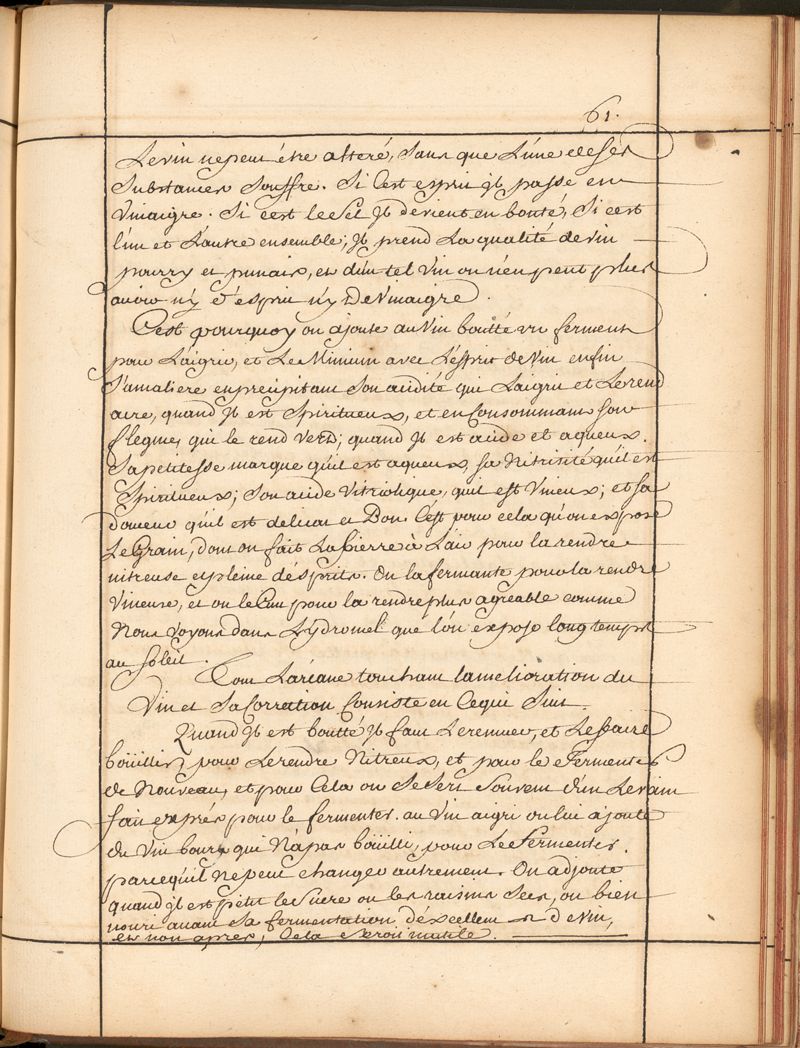 61.
Le vin ne peut être alteré, sans que L'une de ses
Substances souffre. Si C'est esprit Jl passe en
Vinaigre. Si c'est le sel Jl devient en bouté, Si c'est
l'un et L'autre ensemble; Jl prend La qualité de vin
pourry et punais, et d'un tel Vin on n'en peut plus
avoir n'y d'esprit n'y De Vinaigre.
C'est pourquoy on ajoute au Vin boutté un ferment
pour L'aigrir, et Le Minium avec L'esprit de Vin enfin
S'amaliere en precipitant Son acidité qui L'aigrit et Le rend
acre, quand Jl est Spiritueux, et en Consommant son
flegme, qui le rend Verd; quand Jl est acide et aqueux.
Sa petitesse marque qu'il est aqueux, sa Nitrosité qu'il est
Spiritueux; Son acide Vitriolique, qu'il est Vineux; et sa
douceur qu'il est delicat et Bon. C'est pour cela qu'on expose
Le Grain, dont on fait La bierre à L'air pour la rendre
nitreuse et pleine d'ésprits. On la fermante pour la rendre
Vineuse, et on le Cuit pour la rendre plus agreable comme
Nous Voyons dans L'ydromel que l'on expose long temps
au Soleil.
Tout L'arcane touchant l'amelioration du
Vin et Sa Corration Consiste en Ce qui Suit.
Quand Jl est boutté Jl faut Le remuer, et Le faire
boüillir pour Le rendre Nitreux, et pour le Fermenter
de Nouveau, et pour Cela on Se Sert Souvent d'un Levain
fait exprés pour le fermenter. au Vin aigri on lui ajoute
du Vin bourg qui N'a pas boüilli, pour Le Fermenter,
parce qu'il Ne peut changer autrement. On adjoute
quand Jl est petit le Sucre ou les raisins Secs, ou bien
nouri avant Sa fermentation d'excellent de Vin,
et non après, Cela Seroit inutile.